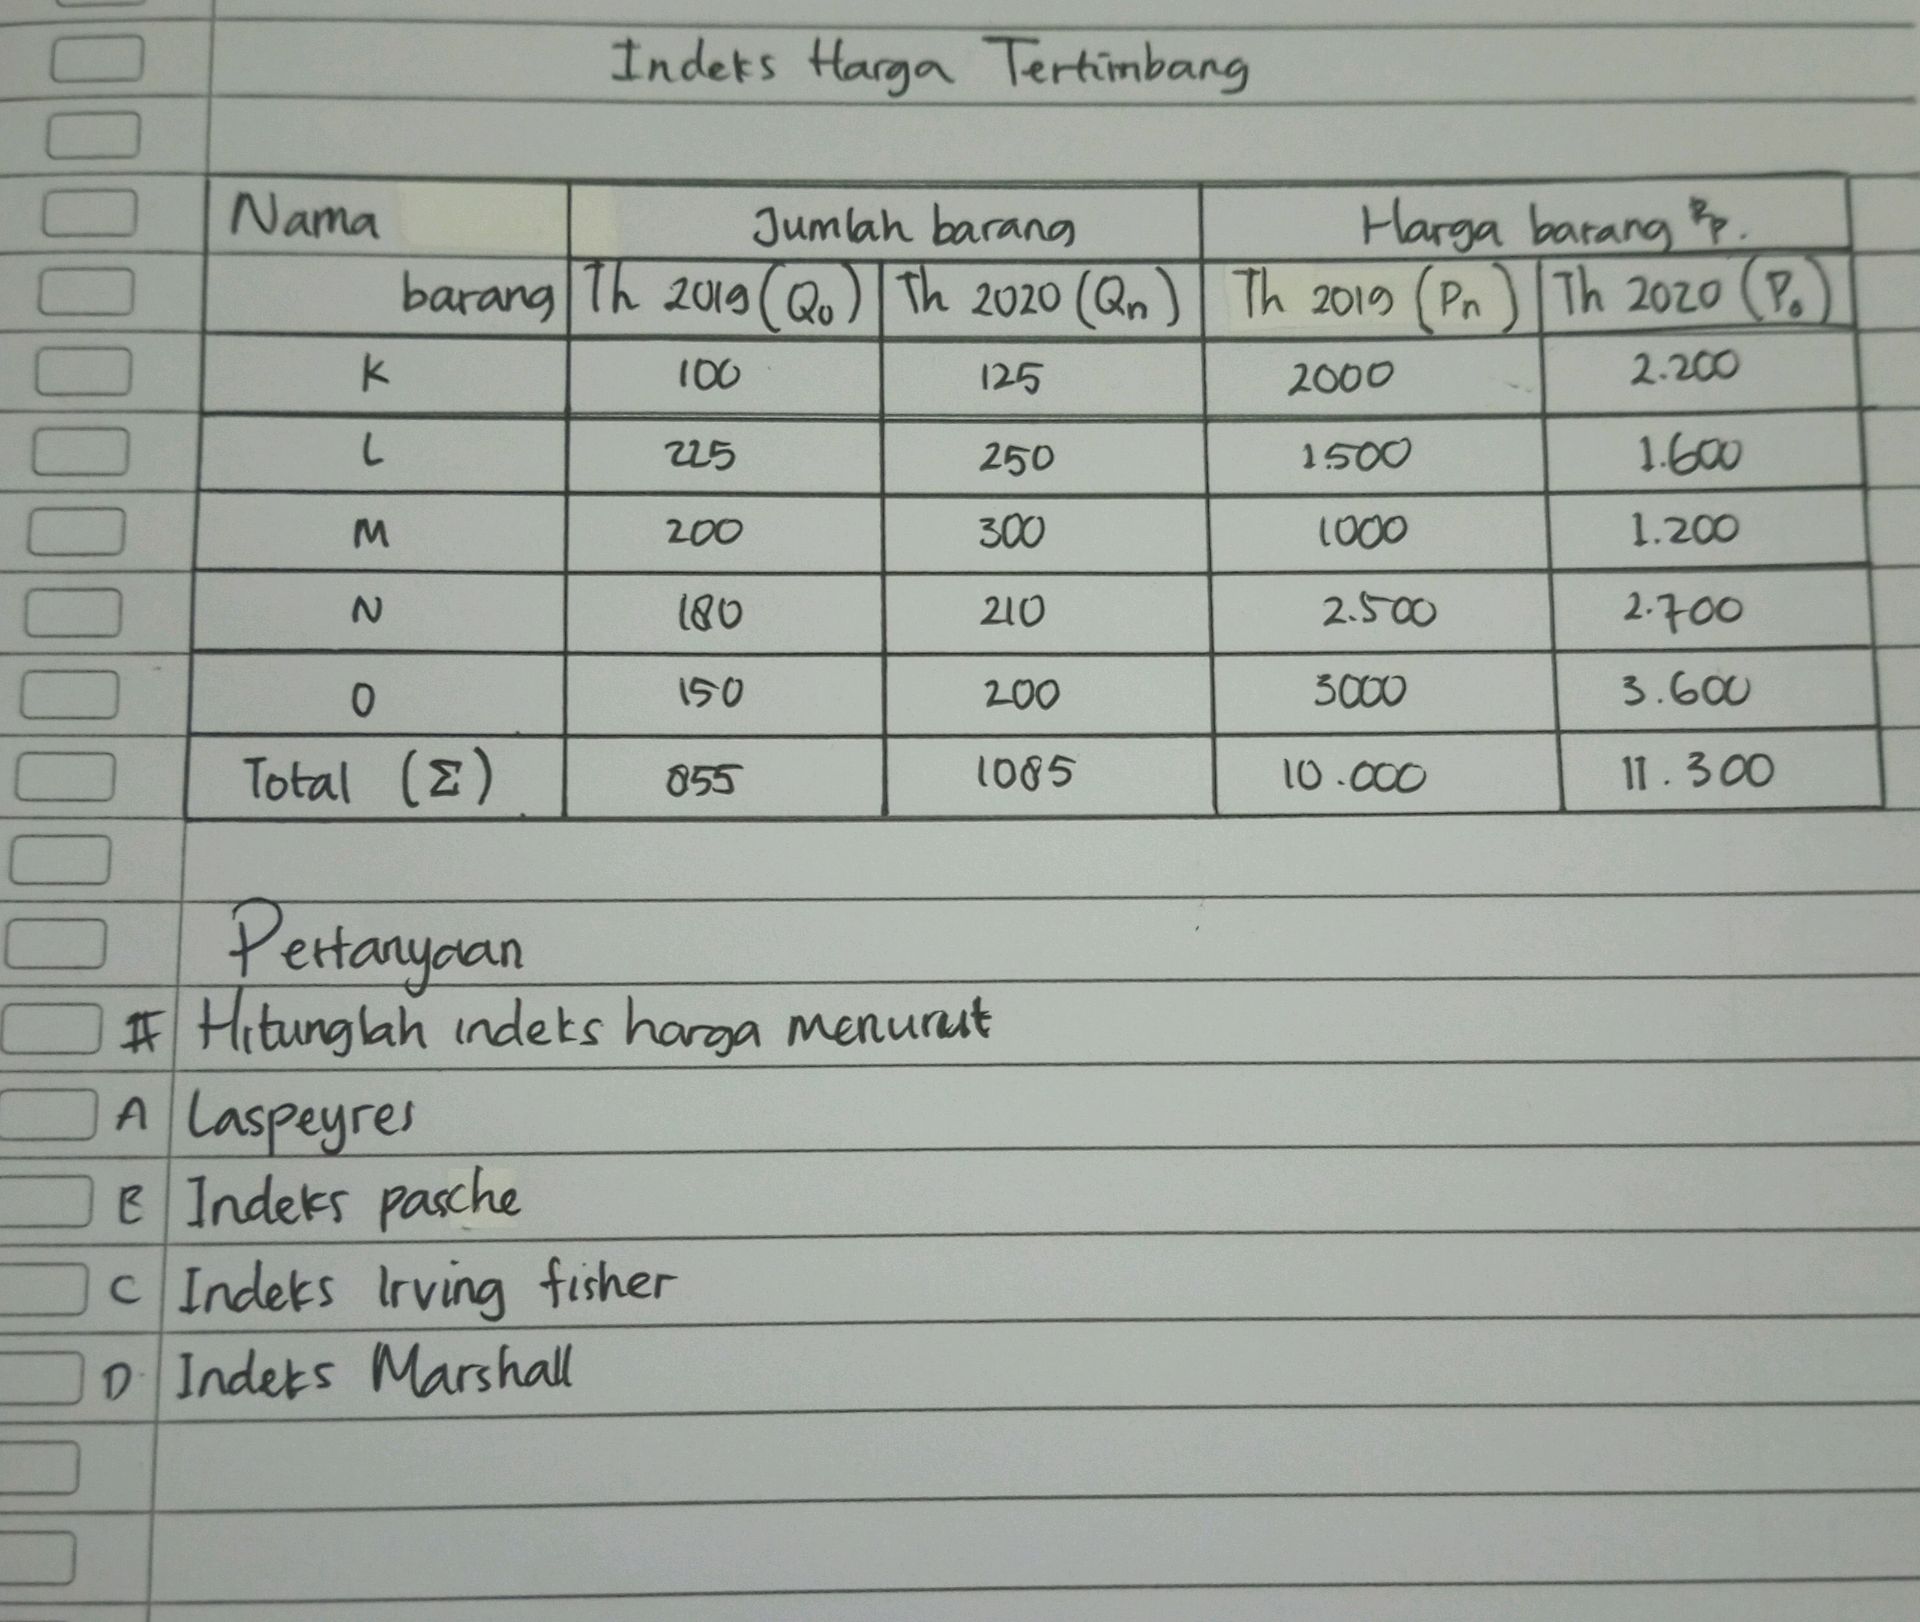 Indeks Harga Tertimbang
Nama barang Jumlah barang Harga barang Rp.
Th 2019 (Qo) Th 2020 (Qn) Th 2019 (Pn) Th 2020 (Po)
K 100 125 2000 2.200
L 225 250 1500 1.600
M 200 300 1000 1.200
N 180 210 2.500 2.700
O 150 200 3000 3.600
Total (Σ) 855 1085 10.000 11.300
Pertanyaan
# Hitunglah indeks harga menurut
A Laspeyres
B Indeks pasche
C Indeks Irving fisher
D Indeks Marshall